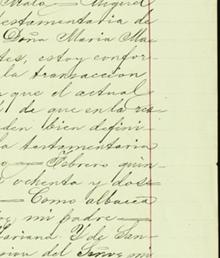 Mata — Miguel
testamentaria de
Doña Maria Ma-
tes, estoy confor-
la transaccion
en que el actual
91 de que en la es-
den bien defini
la testamentaria
— Febrero quin
ochenta y dos
— Como albacea
mi padre —
Mariana Y de San-
cion del Señor